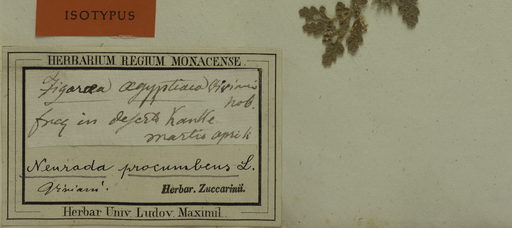 ISOTYPUS
HERBARIUM REGIUM MONACENSE.
Figaraea aegyptiaca Viviani
nob.
freq in desert
martio april
Neurada procumbens L.
Viviani.
Herbar. Zuccarinii.
Herbar Univ. Ludov. Maximil.